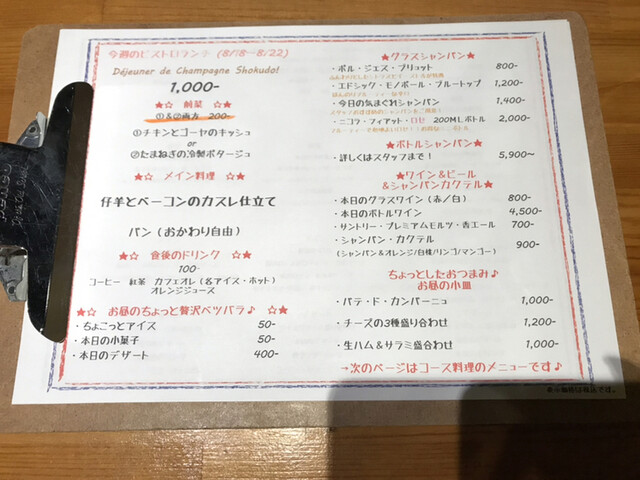 今週のビストロランチ (8/18〜8/22)
Déjeuner de Champagne Shokudo!
1,000-
★☆ 前菜 ★☆
①&②両方 200-
①チキンとゴーヤのキッシュ
or
②たまねぎの冷製ポタージュ
★☆ メイン料理 ★☆
仔羊とベーコンのカスレ仕立て
パン (おかわり自由)
★☆ 食後のドリンク ★☆
100-
コーヒー 紅茶 カフェオレ (各アイス・ホット)
オレンジジュース
★☆ お昼のちょっと贅沢ベツバラ♪ ☆★
・ちょこっとアイス 50-
・本日の小菓子 50-
・本日のデザート 400-
★グラスシャンパン★
・ポル・ジェス・ブリュット 800-
・エドシック・モノポール・ブルートップ 1,200-
・今日の気まぐれシャンパン 1,400-
・ニコラ・フィアット・ロゼ 200MLボトル 2,000-
★ボトルシャンパン★
・詳しくはスタッフまで! 5,900〜
★ワイン&ビール
&シャンパンカクテル★
・本日のグラスワイン (赤/白) 800-
・本日のボトルワイン 4,500-
・サントリー・プレミアムモルツ・香エール 700-
・シャンパン・カクテル 900-
(シャンパン&オレンジ/白桃/リンゴ/マンゴー)
ちょっとしたおつまみ♪
お昼の小皿
・パテ・ド・カンパーニュ 1,000-
・チーズの3種盛り合わせ 1,200-
・生ハム&サラミ盛合わせ 1,000-
→次のページはコース料理のメニューです♪